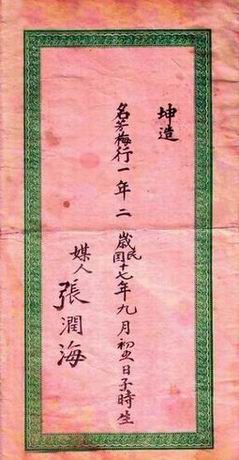 坤造
名芳梅行一年二 歲民國十七年九月初 日子時生
媒人張潤海